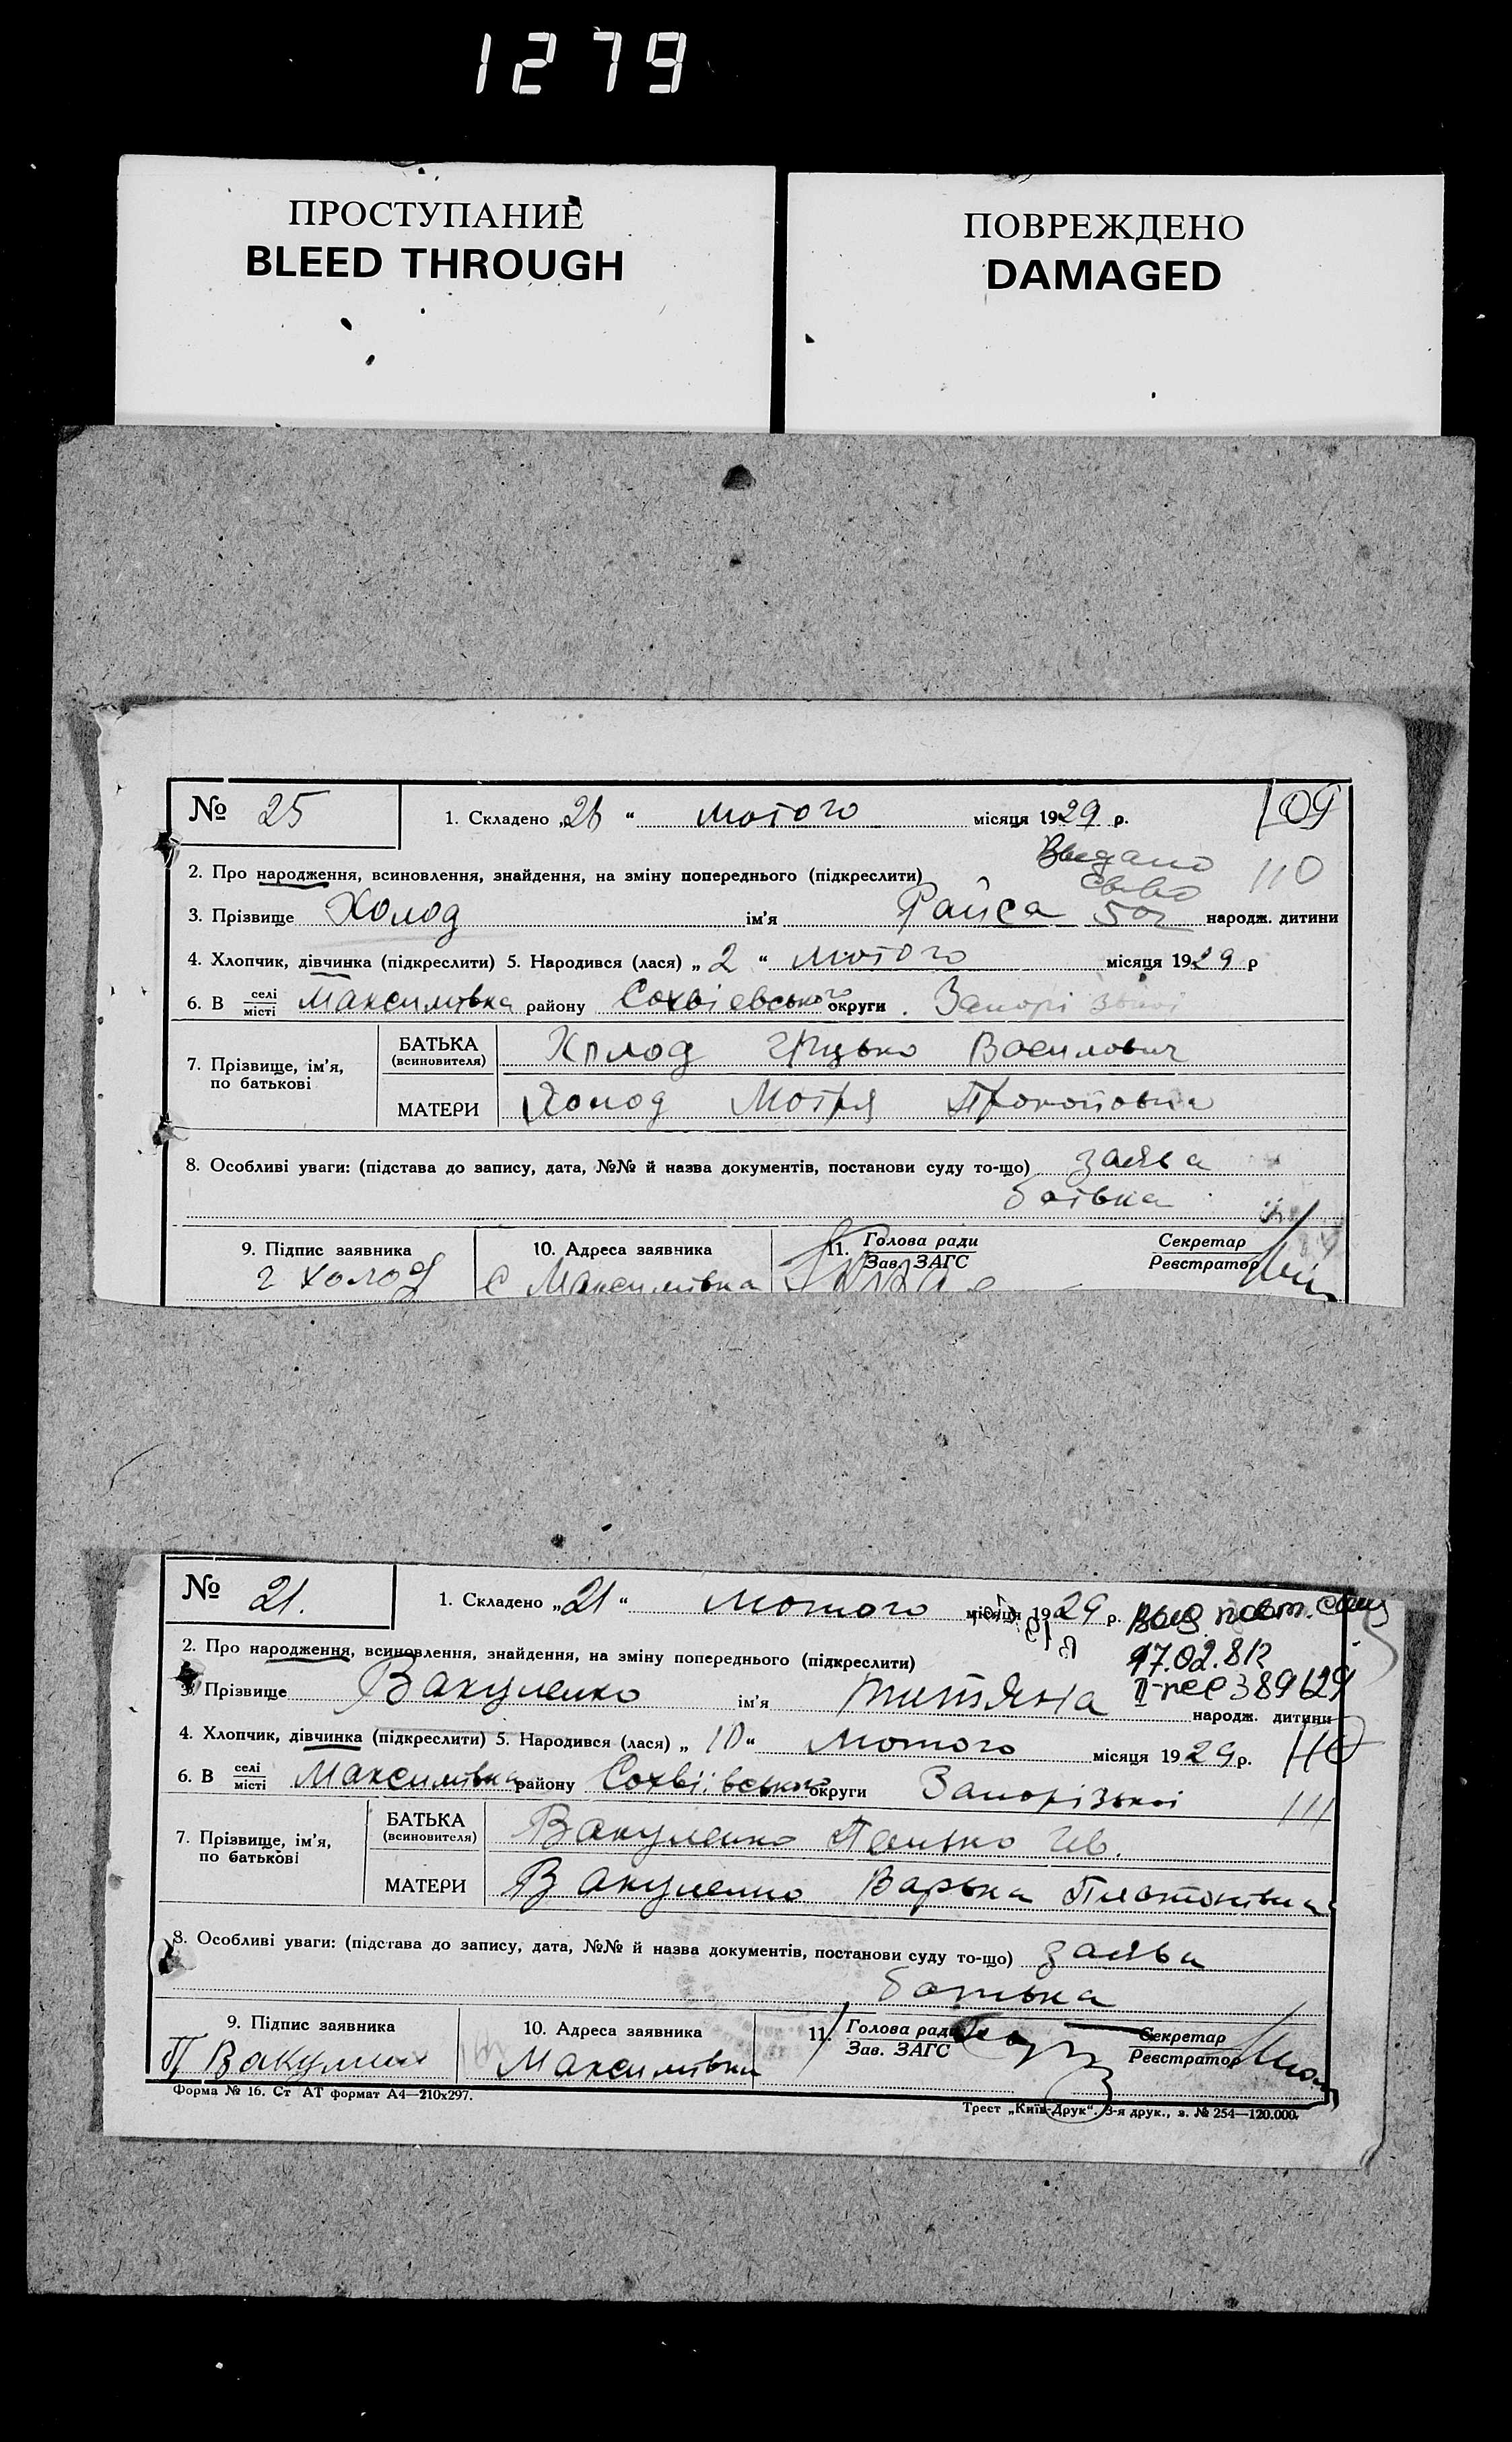 1279
ПРОСТУПАНИЕ
BLEED THROUGH
ПОВРЕЖДЕНО
DAMAGED
№ 25
1. Складено „26 “ лютого місяця 1929 р.
109
Выдано
110
2. Про народження, всиновлення, знайдення, на зміну попереднього (підкреслити)
св-во
3. Прізвище Холод ім'я Раїса 50г народж. дитини
4. Хлопчик, дівчинка (підкреслити) 5. Народився (лася) „ 2 “ лютого місяця 1929 р
6. В селі місті Максимівка району Софіевського округи Запорізької
7. Прізвище, ім'я, по батькові
БАТЬКА (всиновителя) Холод Грицько Василович
МАТЕРИ Холод Мотря Прокоповна
8. Особливі уваги: (підстава до запису, дата, №№ й назва документів, постанови суду то-що) заява
батька
9. Підпис заявника
Г Холод
10. Адреса заявника
С Максимівка
11. Голова ради
Зав. ЗАГС
Секретар
Реєстратор
№ 21.
1. Складено „21 “ лютого місяця 1929 р. Выд. повт. свид
2. Про народження, всиновлення, знайдення, на зміну попереднього (підкреслити)
17.02.81г
3. Прізвище Вакуленко ім'я Титяна народж. дитини
389629
4. Хлопчик, дівчинка (підкреслити) 5. Народився (лася) „ 10 “ лютого місяця 1929 р.
110
6. В селі місті Максимівка району Софіївського округи Запорізької
111
7. Прізвище, ім'я, по батькові
БАТЬКА (всиновителя) Вакуленко Панько Ів.
МАТЕРИ Вакуленко Варька Платонівна
8. Особливі уваги: (підстава до запису, дата, №№ й назва документів, постанови суду то-що) заява
батька
9. Підпис заявника
П Вакулин
10. Адреса заявника
Максимівка
11. Голова ради
Зав. ЗАГС
Секретар
Реєстратор
Форма № 16. Ст АТ формат А4—210х297.
Трест „Київ-Друк“. 3-я друк., з. № 254—120.000.